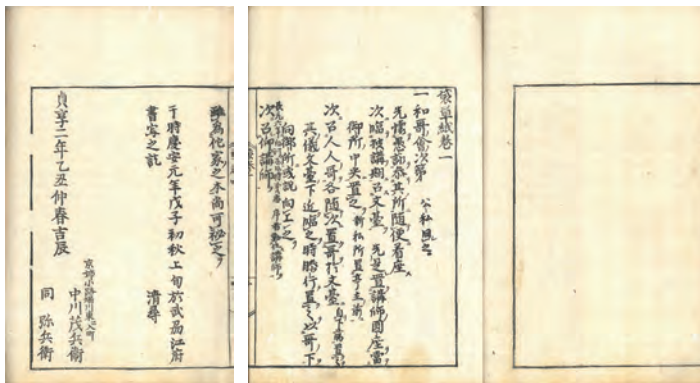 袋草紙巻一
一和哥會次第 公私同之
先懦愚訥恭其所随便着座
次臨披講期召文臺 先是置講師圓座當
御所中央置之 新私所置亭主前
次召人人哥各随次置哥於文臺 自下﨟置之
其儀文臺下近臨之時膝行置之以哥下
向御所或説向上
次召仰講師
雖為他家之本尚可秘之
于時慶安元年戊子初秋上旬於武州江府
書写之訖 清尋
貞享二年乙丑仲春吉辰
中川茂兵衛
同 弥兵衛